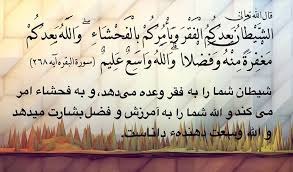 قال الله تعالی
الشَّيْطَانُ يَعِدُكُمُ الْفَقْرَ وَيَأْمُرُكُمْ بِالْفَحْشَاءِ ۖ وَاللَّهُ يَعِدُكُمْ
مَغْفِرَةً مِنْهُ وَفَضْلًا ۗ وَاللَّهُ وَاسِعٌ عَلِيمٌ (سورة البقره آیه ۲۶۸)
شیطان شما را به فقر وعده می‌دهد، و به فحشاء امر
می کند و الله شما را به آمرزش و فضل بشارت میدهد
و الله وسعت دهندهء داناست.